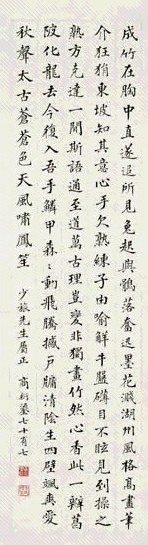 成竹在胸中直遂追所見兔起與鶻落奮迅墨花濺湖州風格高畫筆
介狂狷東坡知其意心手欠熟練子由喻解牛盤礴目不眩見到操之
熟方克達一間斯語通至道萬古理豈變非獨畫竹然心香此一瓣葛
陂化龍去今復入吾手鱗甲森〻動飛騰撼戶牖清陰生四壁颯爽愛
秋聲太古蒼蒼色天風嘯鳳笙 少旅先生屬正 高 七十有七